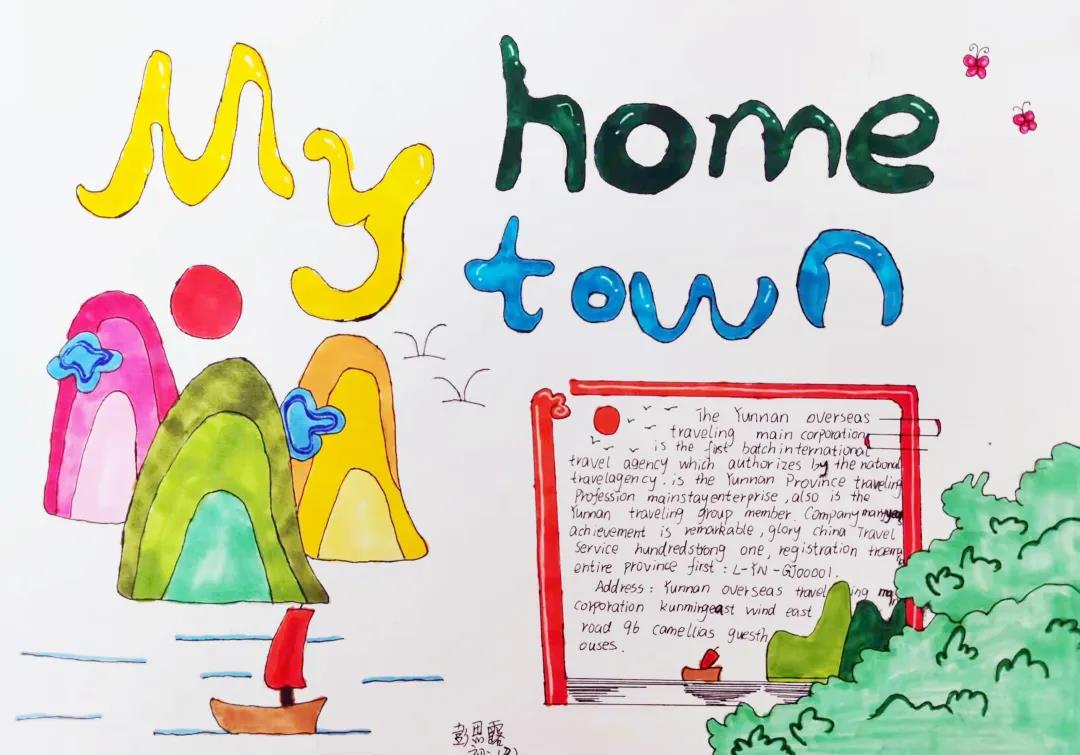 My home
town
The Yunnan overseas
traveling main corporation
is the first batch international
travel agency which authorizes by the national
travelagency. is the Yunnan Province traveling
Profession mainstay enterprise, also is the
Yunnan traveling group member. Company
achievement is remarkable, glory china Travel
Service hundredstrong one, registration
entire province first: L-YN-GJ00001.
Address: Yunnan overseas traveling
corporation kunmingeast wind east
road 96 camellias guesth
ouses.
彭思露